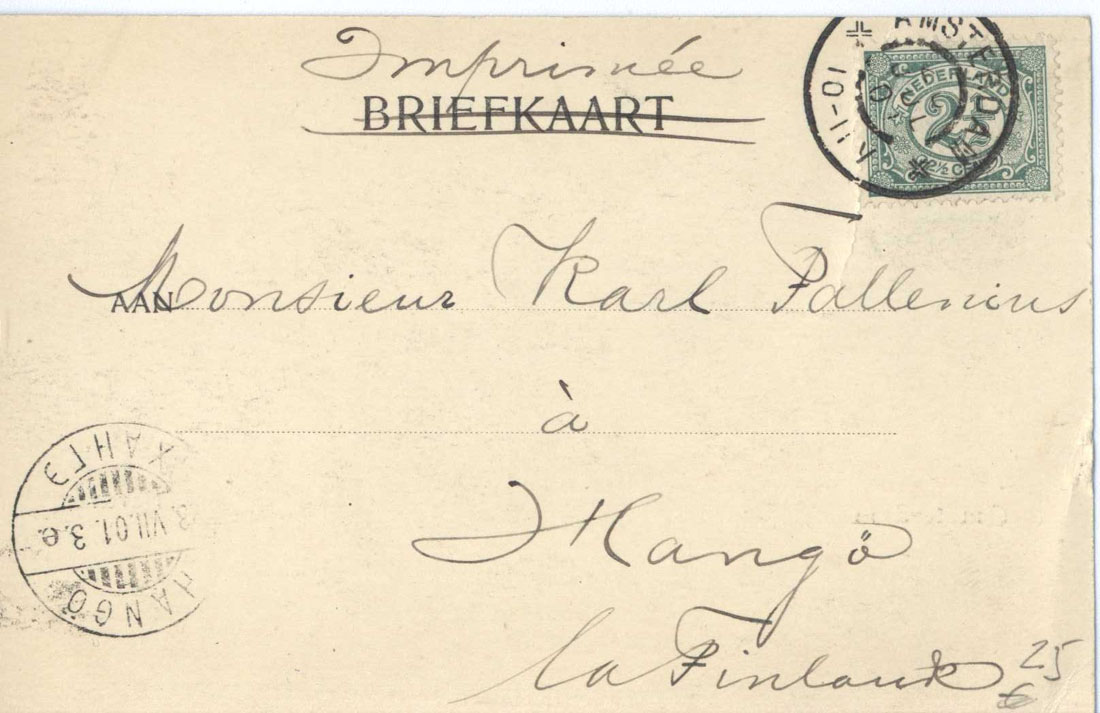 Imprimée
BRIEFKAART
AMSTERDAM
NEDERLAND
2½
2½ CENT
AAN Monsieur Karl Fallenius
à
Hangö
la Finlande
ХАНГЭ
3.VII.01. 3.e.
HANGÖ
25
€